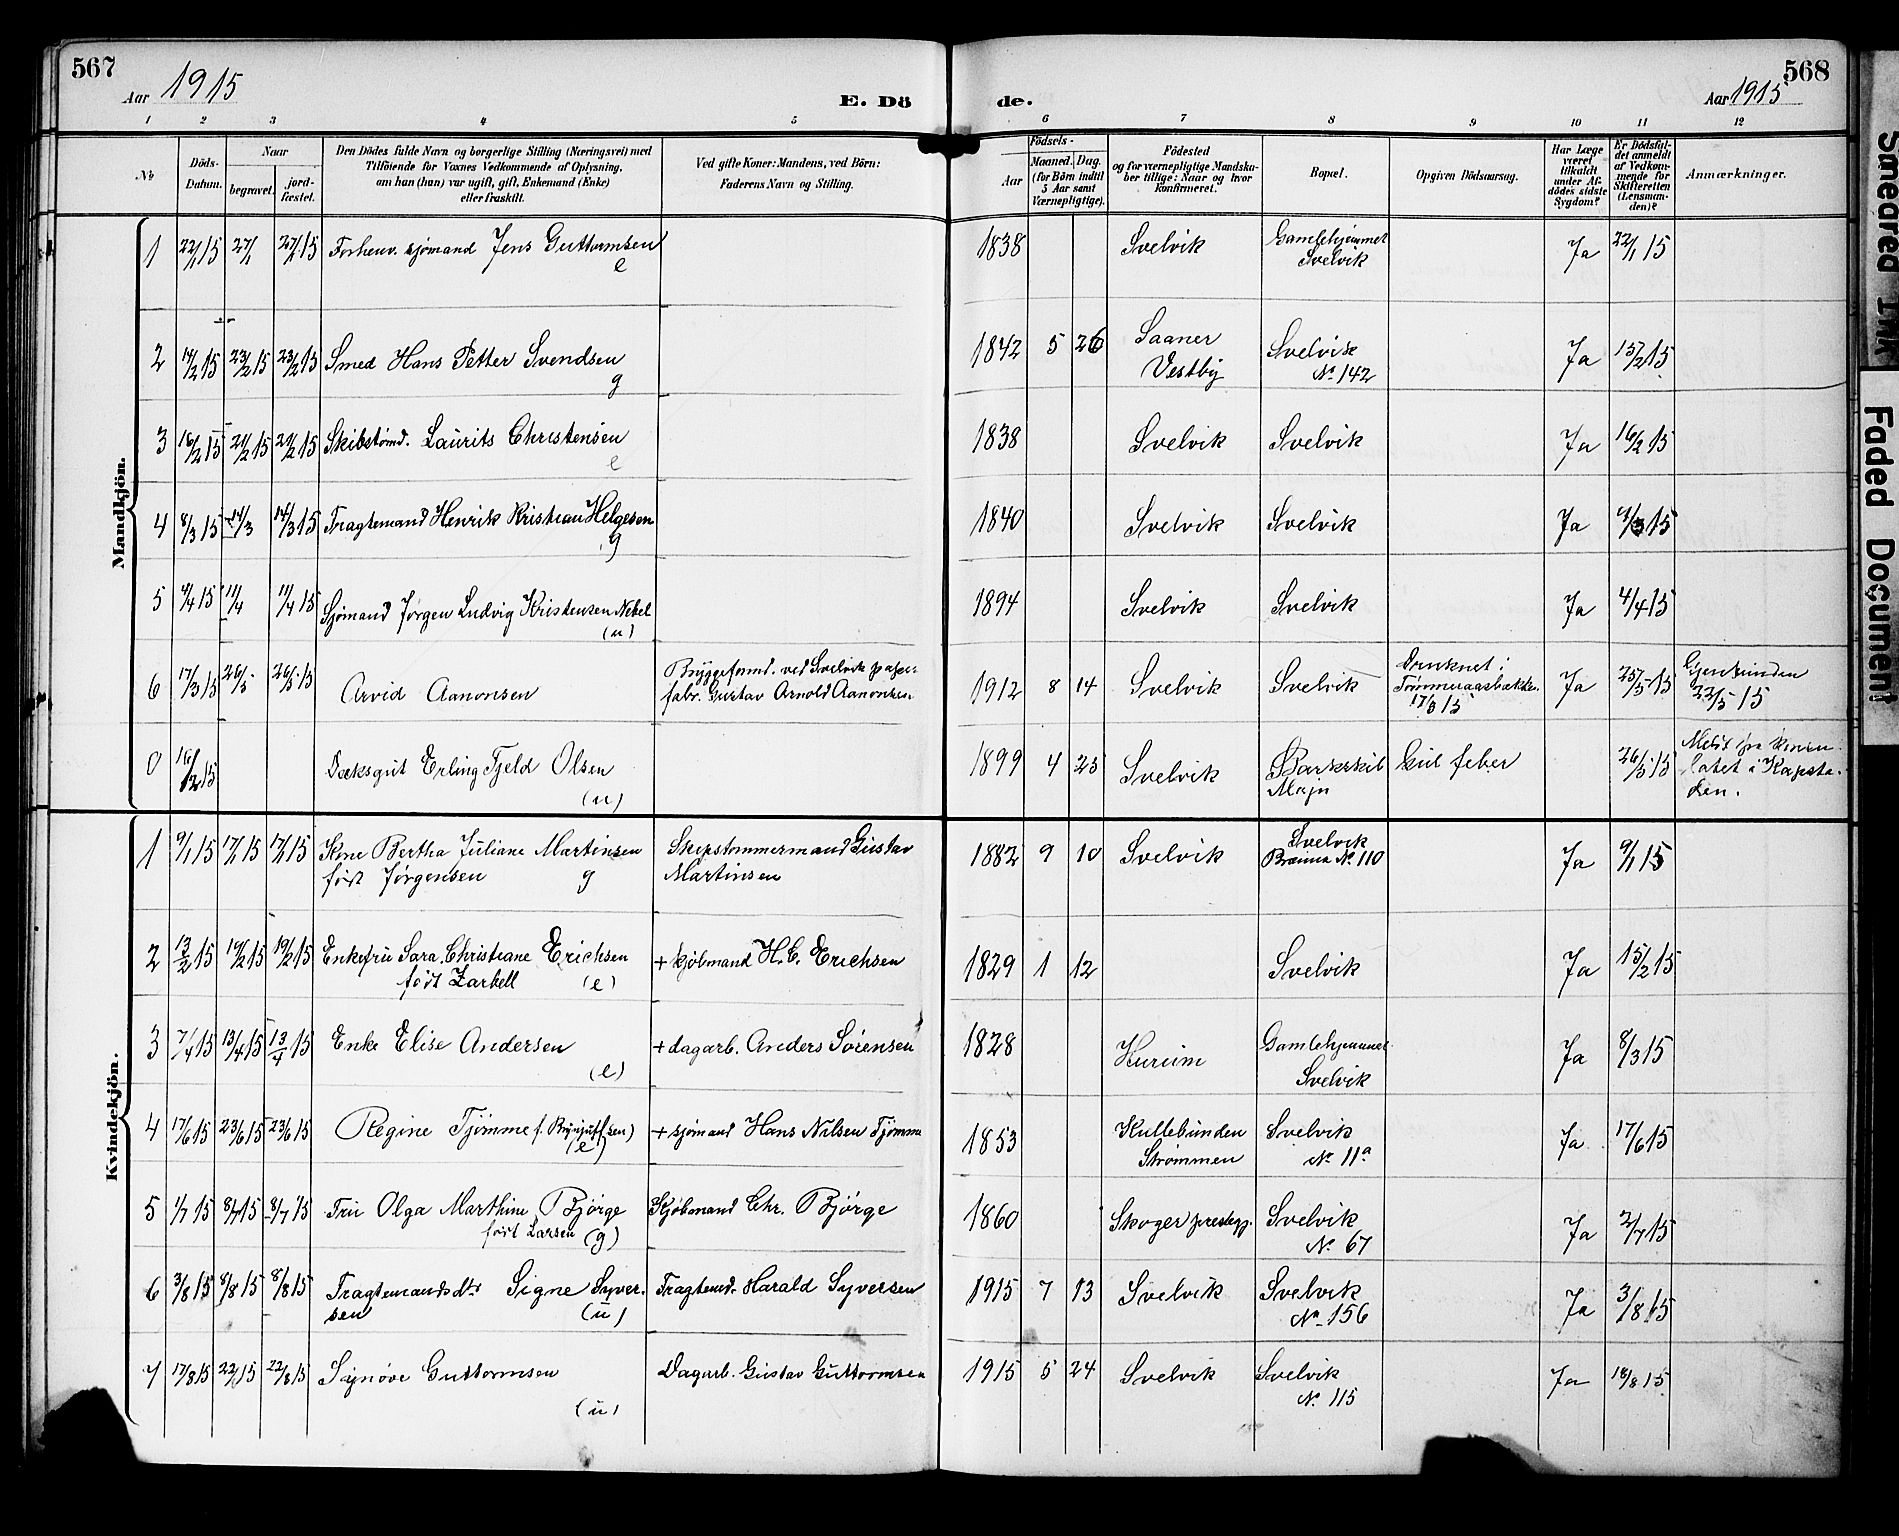 567
Aar 1915
E. Dö
de.
568
Aar 1915
1 2 3 4 5 6 7 8 9 10 11 12
No
Döds-
Datum.
Naar
begravet.
jord-
fæstet.
Den Dödes fulde Navn og borgerlige Stilling (Næringsvei) med
Tilföiende for Voxnes Vedkommende af Oplysning,
om han (hun) var ugift, gift, Enkemand (Enke)
eller fraskilt.
Ved gifte Koner: Mandens, ved Börn:
Faderens Navn og Stilling.
Födsels-
Aar
Maaned. Dag.
(for Börn indtil
5 Aar samt
Værnepligtige).
Födested
og for værnepligtige Mandska-
ber tillige: Naar og hvor
konfirmeret.
Bopæl.
Opgiven Dödsaarsag.
Har Læge
været
tilkaldt
under Af-
dödes sidste
Sygdom?
Er Dödsfal-
det anmeldt
af Vedkom-
mende for
Skifteretten
(Lensman-
den)?
Anmærkninger.
Mandkjön.
1 22/1 15 27/1 27/1 15 Forhenv. sjømand Jens Guttormsen
e
1838 Svelvik Gamlehjemmet
Svelvik
Ja 22/1 15
2 14/2 15 23/2 15 23/2 15 Smed Hans Petter Svendsen
g
1842 5 26 Saaner
Vestby
Svelvik
No 142
Ja 15/2 15
3 16/2 15 24/2 15 24/2 15 Skibstømd. Laurits Christensen
e
1838 Svelvik Svelvik Ja 16/2 15
4 8/3 15 14/3 14/3 15 Fragtemand Henrik Kristian Helgesen
g
1840 Svelvik Svelvik Ja 9/3 15
5 4/4 15 11/4 11/4 15 Sjømand Jørgen Ludvig Kristensen Nebel
(u)
1894 Svelvik Svelvik Ja 4/4 15
6 17/3 15 26/5 26/5 15 Arvid Aanonsen
Bryggeformd. ved Svelvik papir-
fabr. Gustav Arnold Aanonsen
1912 8 14 Svelvik Svelvik
Druknet i
Tømmeraasbækken
17/3 15
Ja 25/5 15
Gjenfunden
22/5 15
0 16/2 15 Dæksgut Erling Fjeld Olsen
(u)
1899 4 25 Svelvik Barkskib
Majn
Gul feber
26/5 15
Meldt fra konsu-
latet i Kapsta-
den.
Kvindekjön.
1 9/1 15 17/1 15 17/1 15 Kone Bertha Juliane Martinsen
født Jørgensen g
Skipstømmermand Gustav
Martinsen
1882 9 10 Svelvik Svelvik
No 110
Ja 9/1 15
2 13/2 15 19/2 15 19/2 15 Enkefru Sara Christiane Erichsen
født Zarbell (e)
+ kjøbmand H. C. Erichsen
1829 1 12 Svelvik Ja 15/2 15
3 7/4 15 13/4 15 13/4 15 Enke Elise Andersen
(e)
+ dagarb. Anders Sørensen
1828 Hurum Gamlehjemmet
Svelvik
Ja 8/3 15
4 17/6 15 23/6 15 23/6 15 Regine Tjømme f. Brynjulfsen)
(e)
+ sjømand Hans Nilsen Tjømme
1853 Kullebunden
Strømmen
Svelvik
No 11a
Ja 17/6 15
5 1/7 15 8/7 15 8/7 15 Fru Olga Marthine Bjørge
født Larsen (g)
Kjøbmand Chr. Bjørge
1860 Skoger prestegj. Svelvik
No 67
Ja 2/7 15
6 3/8 15 8/8 15 8/8 15 Fragtemandsdtr Signe Syver-
sen (u)
Fragtemd. Harald Syversen
1915 7 13 Svelvik Svelvik
No 156
Ja 3/8 15
7 17/8 15 22/15 22/8 15 Synøve Guttormsen
(u)
Dagarb. Gustav Guttormsen
1915 5 24 Svelvik Svelvik
No 115
Ja 18/8 15
Smeared Ink
Faded Document